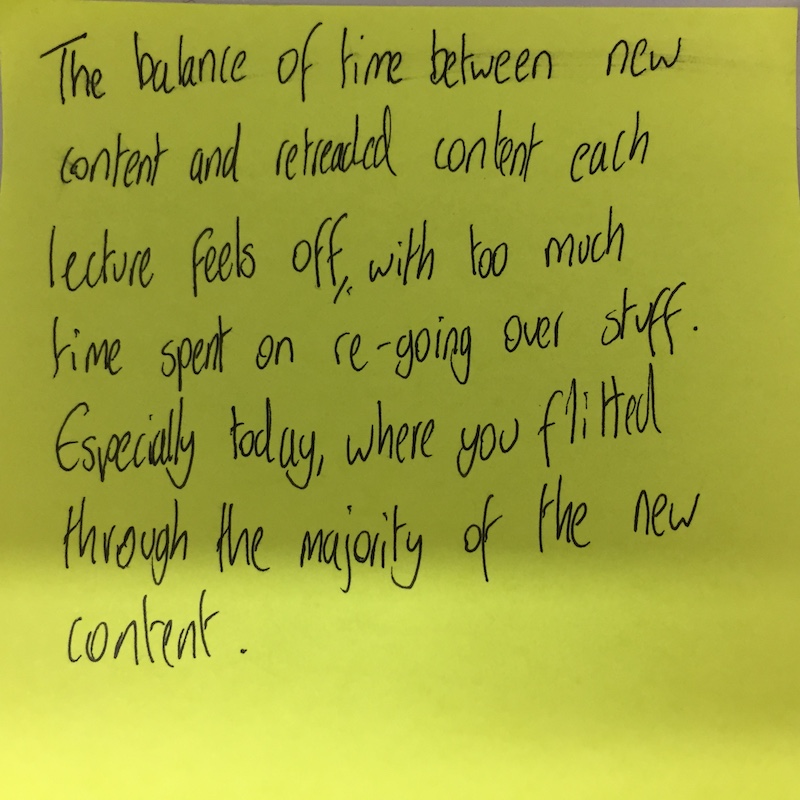 The balance of time between new
content and retreaded content each
lecture feels off, with too much
time spent on re-going over stuff.
Especially today, where you flitted
through the majority of the new
content.